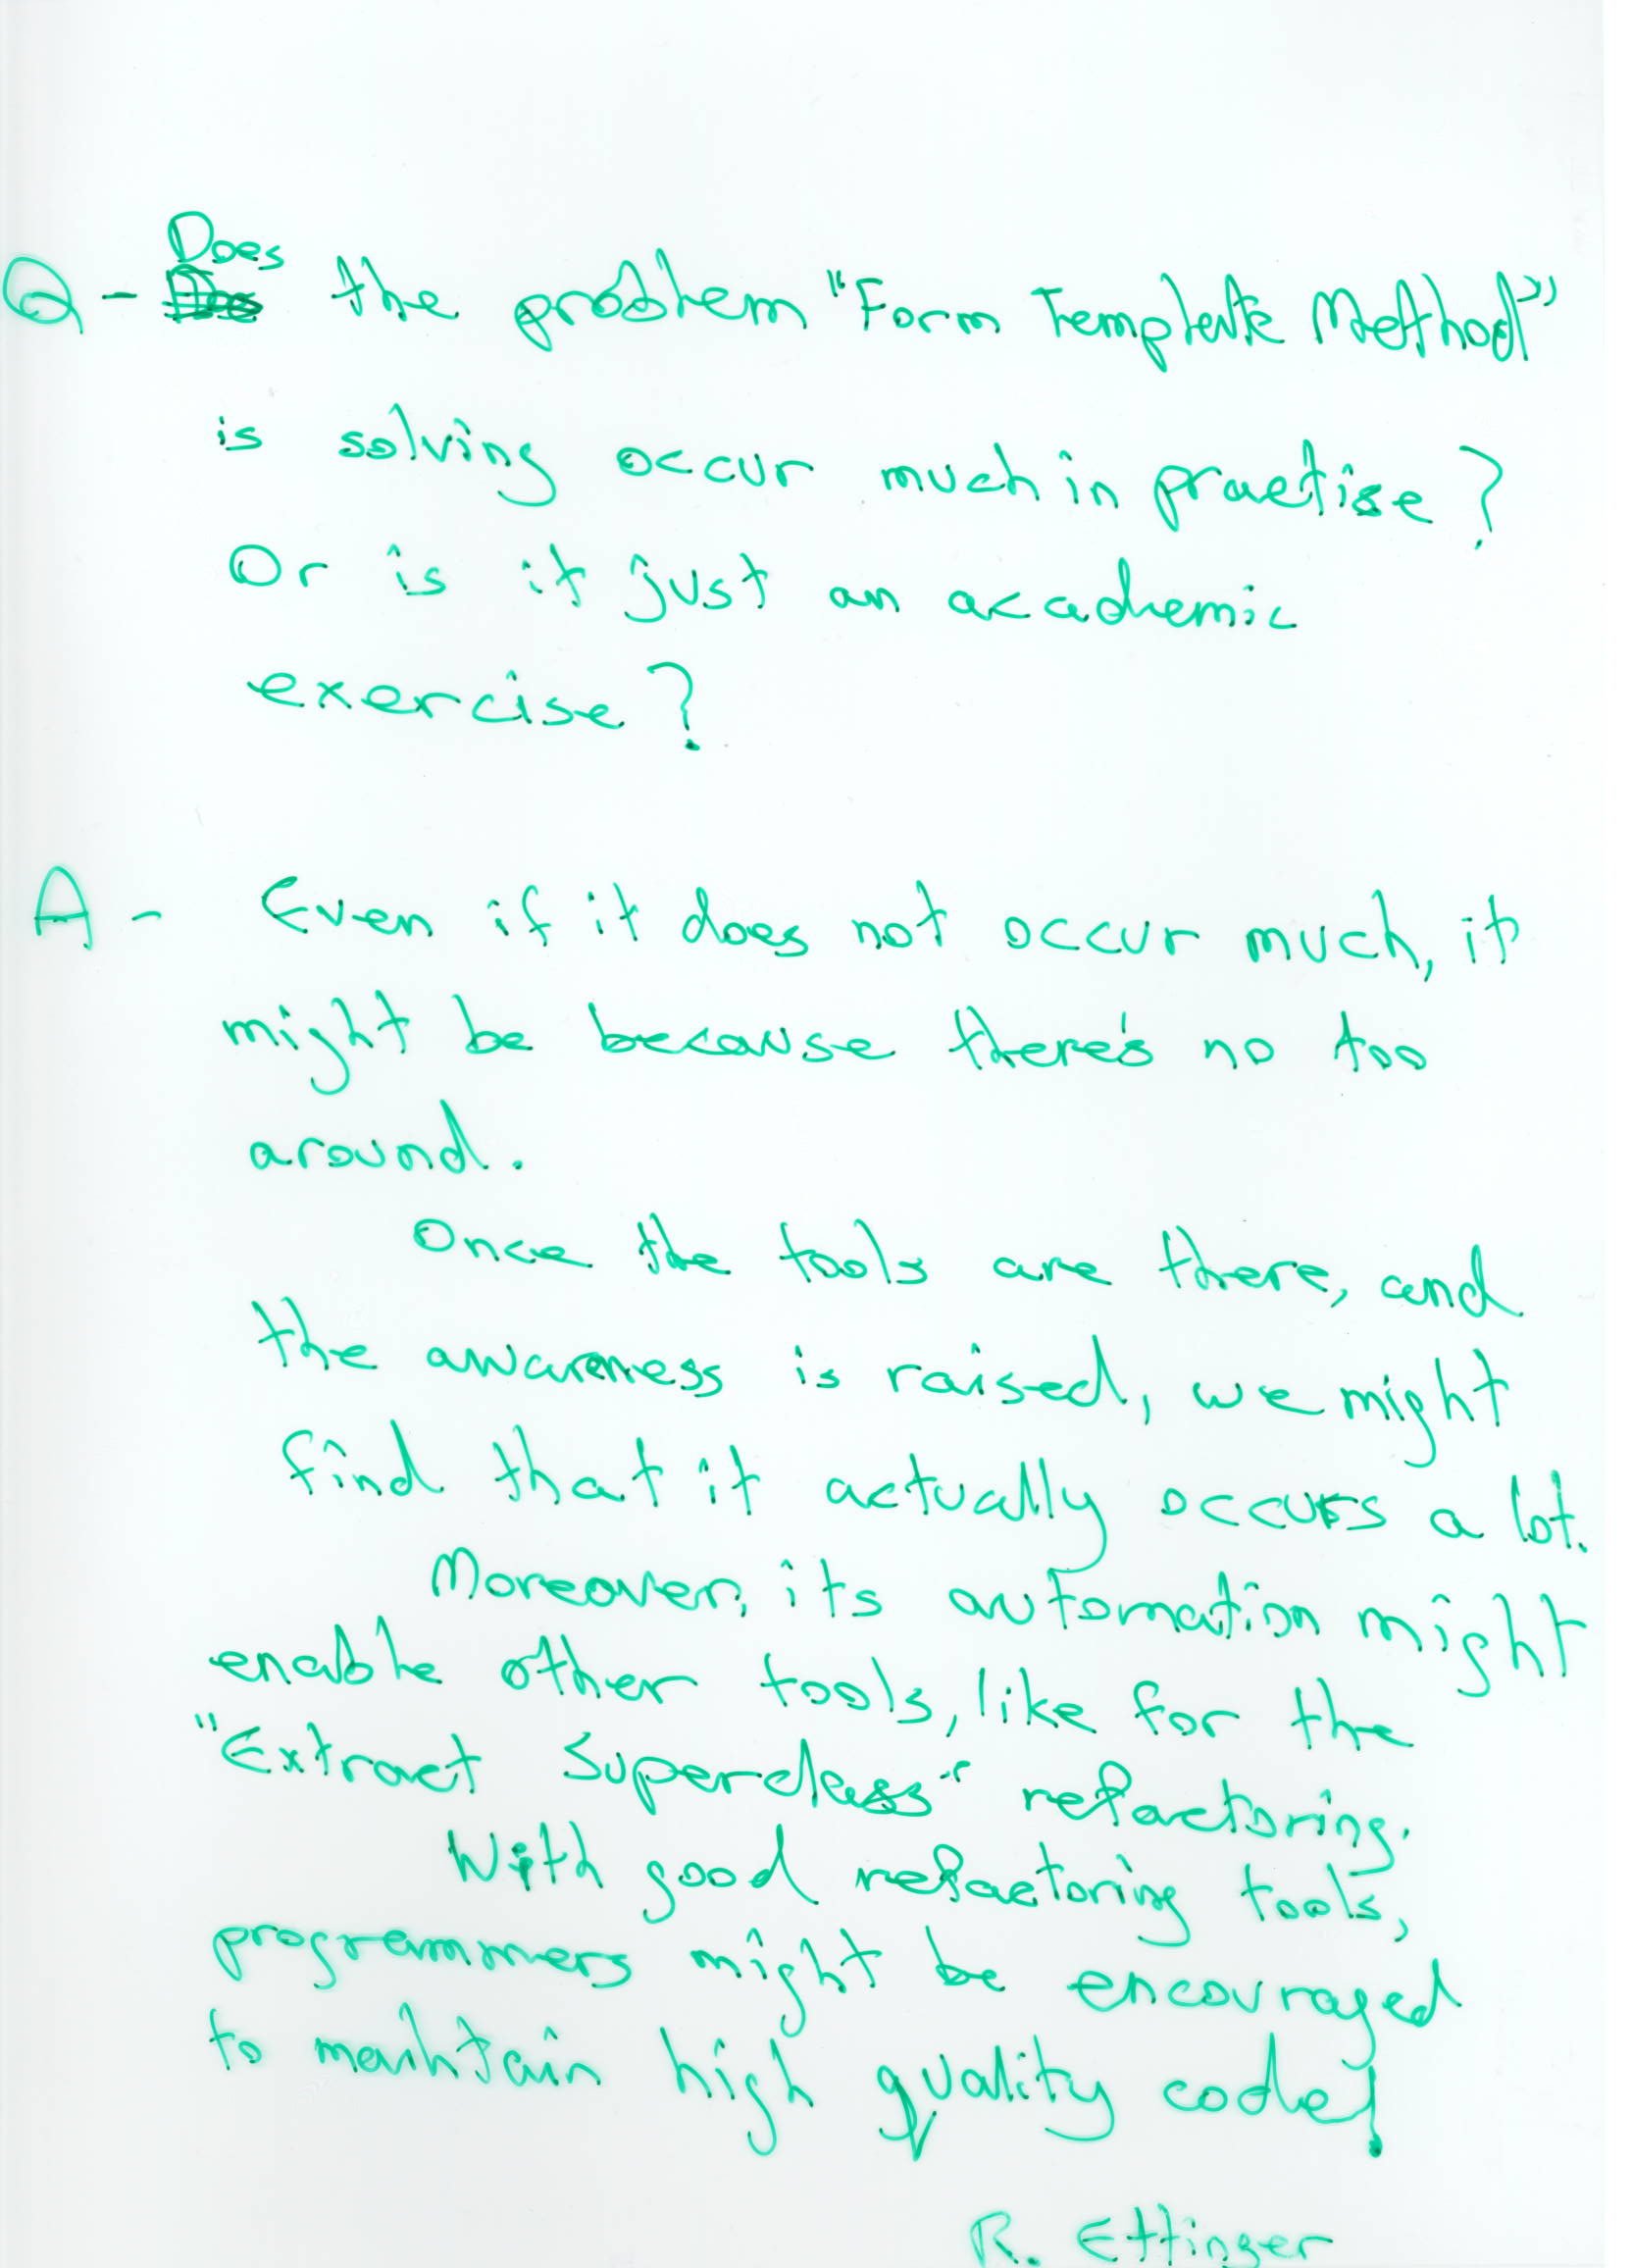 Does
Q - the problem "Form Template Method"
is solving occur much in practise?
Or is it just an academic
exercise?
A - Even if it does not occur much, it
might be because there's no too
around.
Once the tools are there, and
the awareness is raised, we might
find that it actually occurs a lot.
Moreover, its automation might
enable other tools, like for the
"Extract Superclass" refactoring.
With good refactoring tools,
programmers might be encouraged
to maintain high quality code!
R. Ettinger